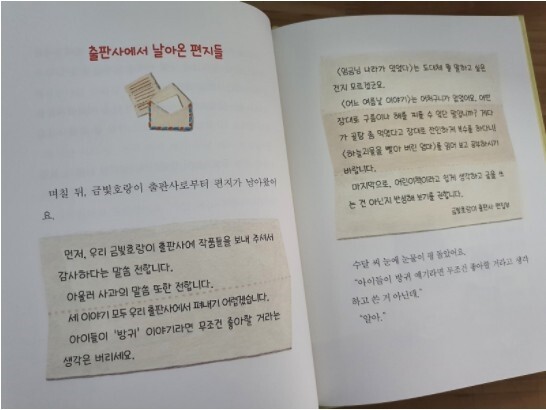 출판사에서 날아온 편지들
며칠 뒤, 금빛호랑이 출판사로부터 편지가 날아왔어
요.
먼저, 우리 금빛호랑이 출판사에 작품들을 보내 주셔서
감사하다는 말씀 전합니다.
아울러 사과의 말씀 또한 전합니다.
세 이야기 모두 우리 출판사에서 펴내기 어렵겠습니다.
아이들이 '방귀' 이야기라면 무조건 좋아할 거라는
생각은 버리세요.
나라가
는 도대체 뭘 말하고 싶은
건지 모르겠군요.
<어느 여름날 이야기>는 어처구니가 없었어요. 어떤
장대로 구름이나 해를 찌를 수 있단 말입니까? 게다
가 꿀잠 좀 먹었다고 장대로 잔인하게 복수를 하다니!
<하늘괴물을 빨아 버린 엄마>를 읽어 보고 공부하시기
바랍니다.
마지막으로, 어린이책이라고 쉽게 생각하고 글을 쓰
는 건 아닌지 반성해 보기를 권합니다.
금빛호랑이 출판사 편집부
수달 씨 눈에 눈물이 핑 돌았어요.
"아이들이 방귀 얘기라면 무조건 좋아할 거라고 생각
하고 쓴 거 아닌데."
"알아."